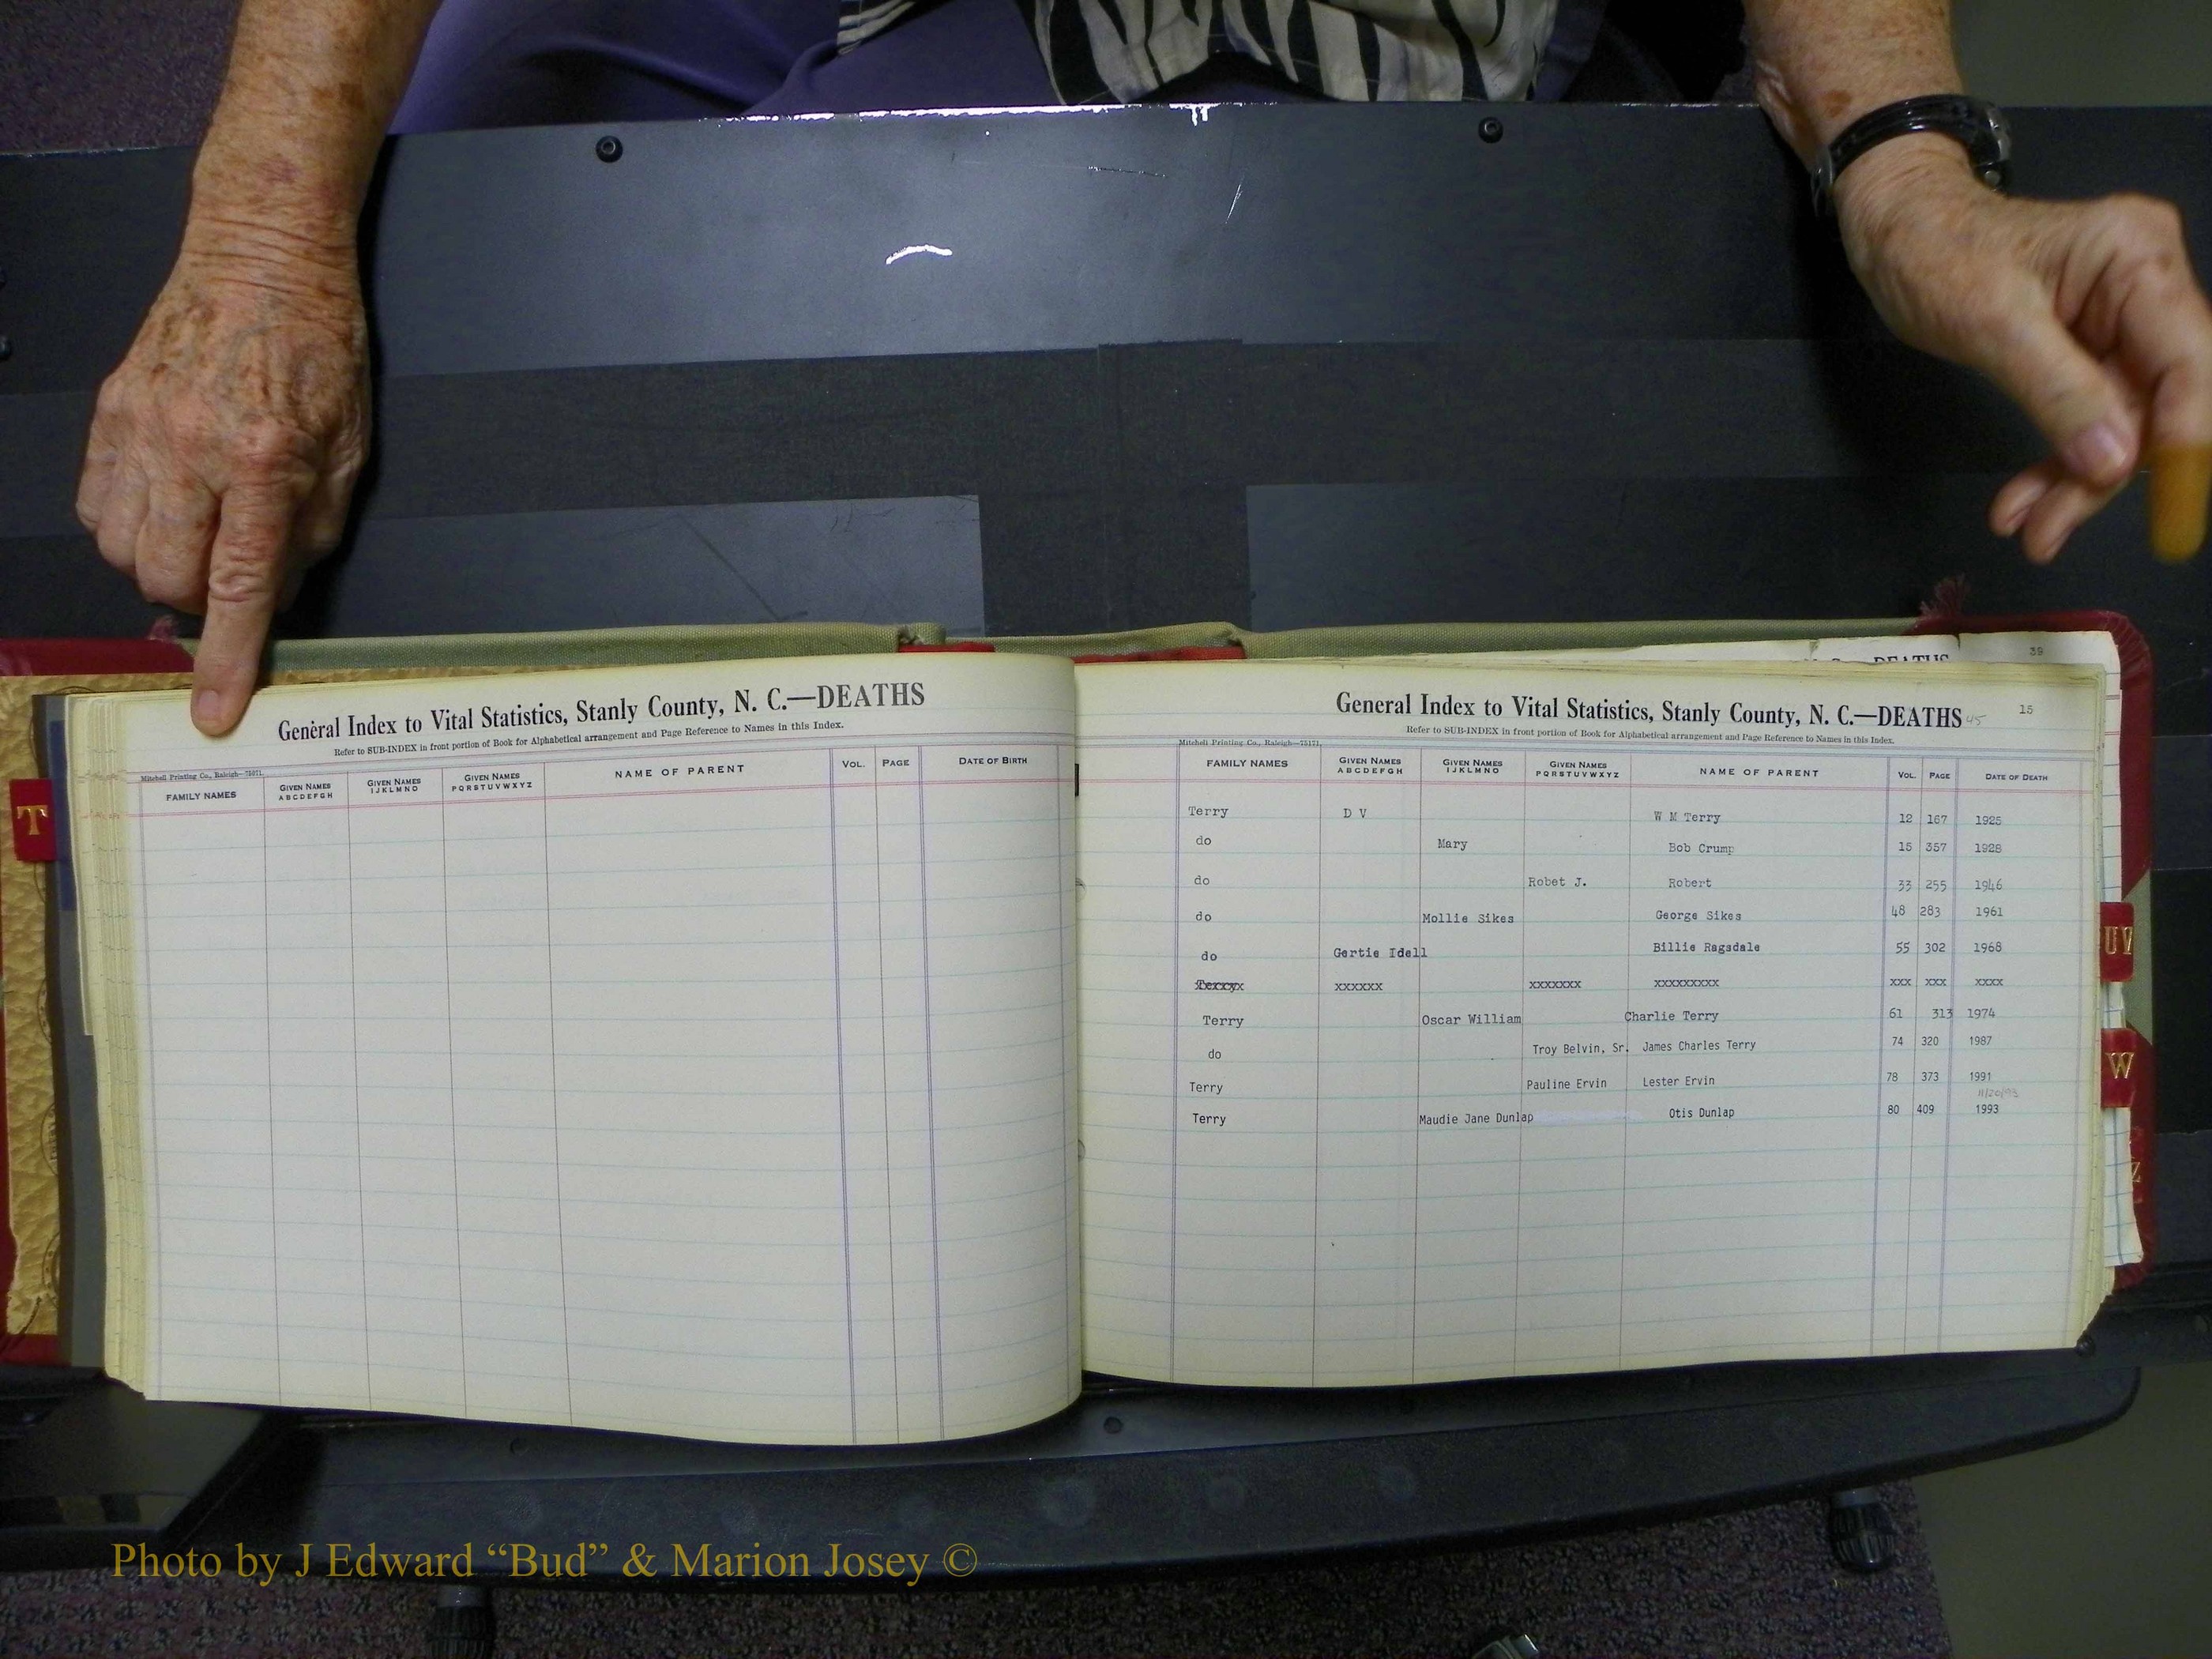 39
General Index to Vital Statistics, Stanly County, N. C.—DEATHS
Refer to SUB-INDEX in front portion of Book for Alphabetical arrangement and Page Reference to Names in this Index.
Mitchell Printing Co., Raleigh—75071.
FAMILY NAMES GIVEN NAMES ABCDEFGH GIVEN NAMES IJKLMNO GIVEN NAMES PQRSTUVWXYZ NAME OF PARENT VOL. PAGE DATE OF BIRTH
T
General Index to Vital Statistics, Stanly County, N. C.—DEATHS 45 15
Refer to SUB-INDEX in front portion of Book for Alphabetical arrangement and Page Reference to Names in this Index.
Mitchell Printing Co., Raleigh—75171.
FAMILY NAMES GIVEN NAMES ABCDEFGH GIVEN NAMES IJKLMNO GIVEN NAMES PQRSTUVWXYZ NAME OF PARENT VOL. PAGE DATE OF DEATH
Terry D V W M Terry 12 167 1925
do Mary Bob Crump 15 357 1928
do Robet J. Robert 33 255 1946
do Mollie Sikes George Sikes 48 283 1961
do Gertie Idell Billie Ragsdale 55 302 1968
Terry xxxxxx xxxxxxx xxxxxxxxx xxx xxx xxxx
Terry Oscar William Charlie Terry 61 313 1974
do Troy Belvin, Sr. James Charles Terry 74 320 1987
Terry Pauline Ervin Lester Ervin 78 373 1991
11/20/93
Terry Maudie Jane Dunlap Otis Dunlap 80 409 1993
UV
W
Z
Photo by J Edward “Bud” & Marion Josey ©